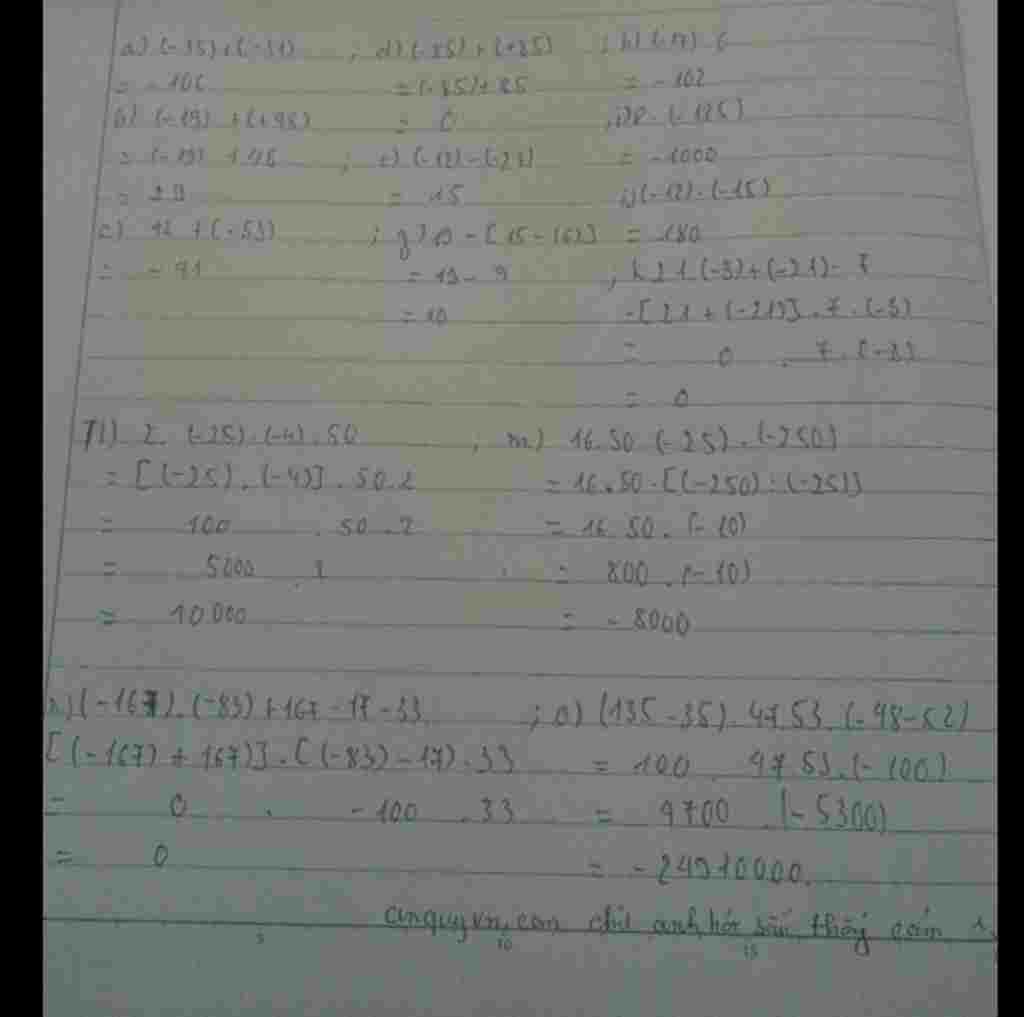 a) (-35) + (-51) ; d) (-85) + (+85) ; h) (-17) . 6
= -106 = (-85) + 85 = -102
b) (-19) + (+48) = 0 ; i) 8 . (-125)
= (-19) + 48 ; e) (-12) - (-27) = -1000
= 29 = 15 ; j) (-12) . (-15)
c) + (-53) ; g) 19 - [15 - (6)] = 180
= - 71 = 19 - 9 ; k) 21 (-3) + (-21) - 7
= 10 = [21 + (-21)] . 7 . (-3)
= 0 . 7 . (-3)
= 0
l) 2. (-25) . (-4) . 50 ; m) 16.50 (-25) . (-250)
= [(-25) . (-4)] . 50.2 = 16.50 . [(-250) : (-25)]
= 100 . 50 . 2 = 16 50 . (-10)
= 5000 . 2 = 800 . (-10)
= 10 000 = - 8000
n) (-167) . (-83) + 167 - 17 - 33 ; o) (135 - 35) . 47 53 . (-48 - 52)
[(-167) + 167)] . [(-83) - 17) . 33 = 100 . 97 53 . (-100)
= 0 . -100 . 33 = 9700 . (-5300)
= 0 = - 24910000.